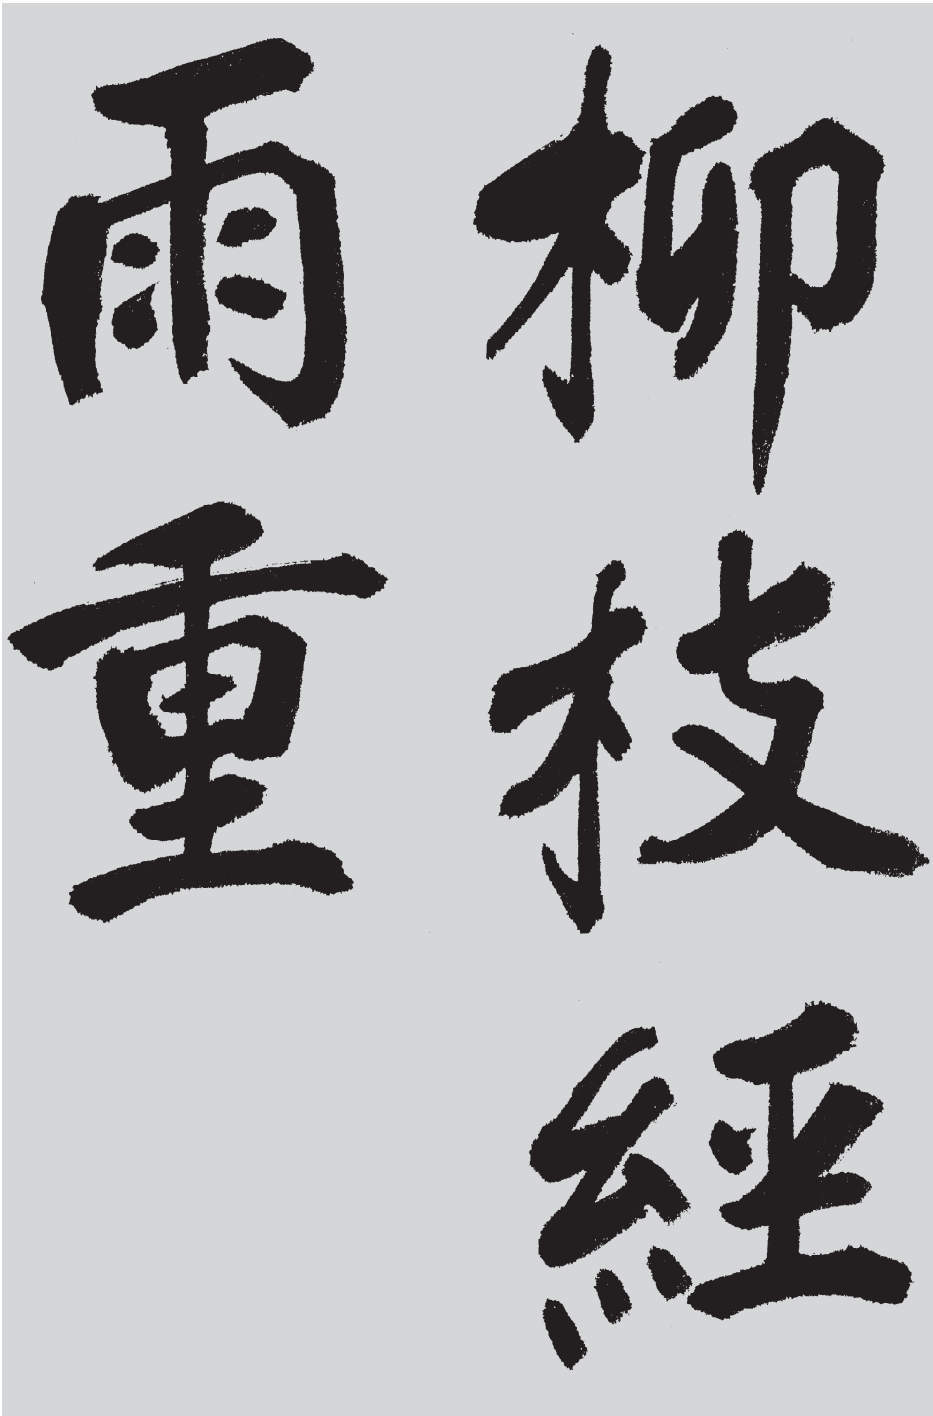 柳枝經
雨重